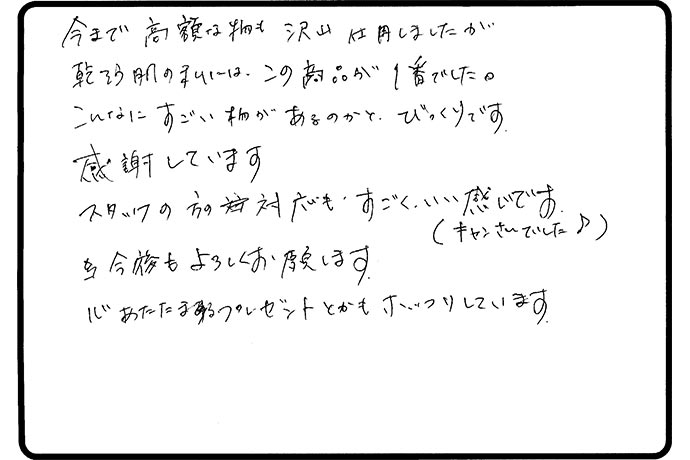 今まで高額な物も沢山仕用しましたが
乾そう肌の私には、この商品が1番でした。
こんなにすごい物があるのかと、びっくりです。
感謝しています
スタッフの方の対応も、すごく、いい感じです。
(キャンさんでした♪)
今後もよろしくお願します。
心あたたまるプレゼントとかもホッコリしています。